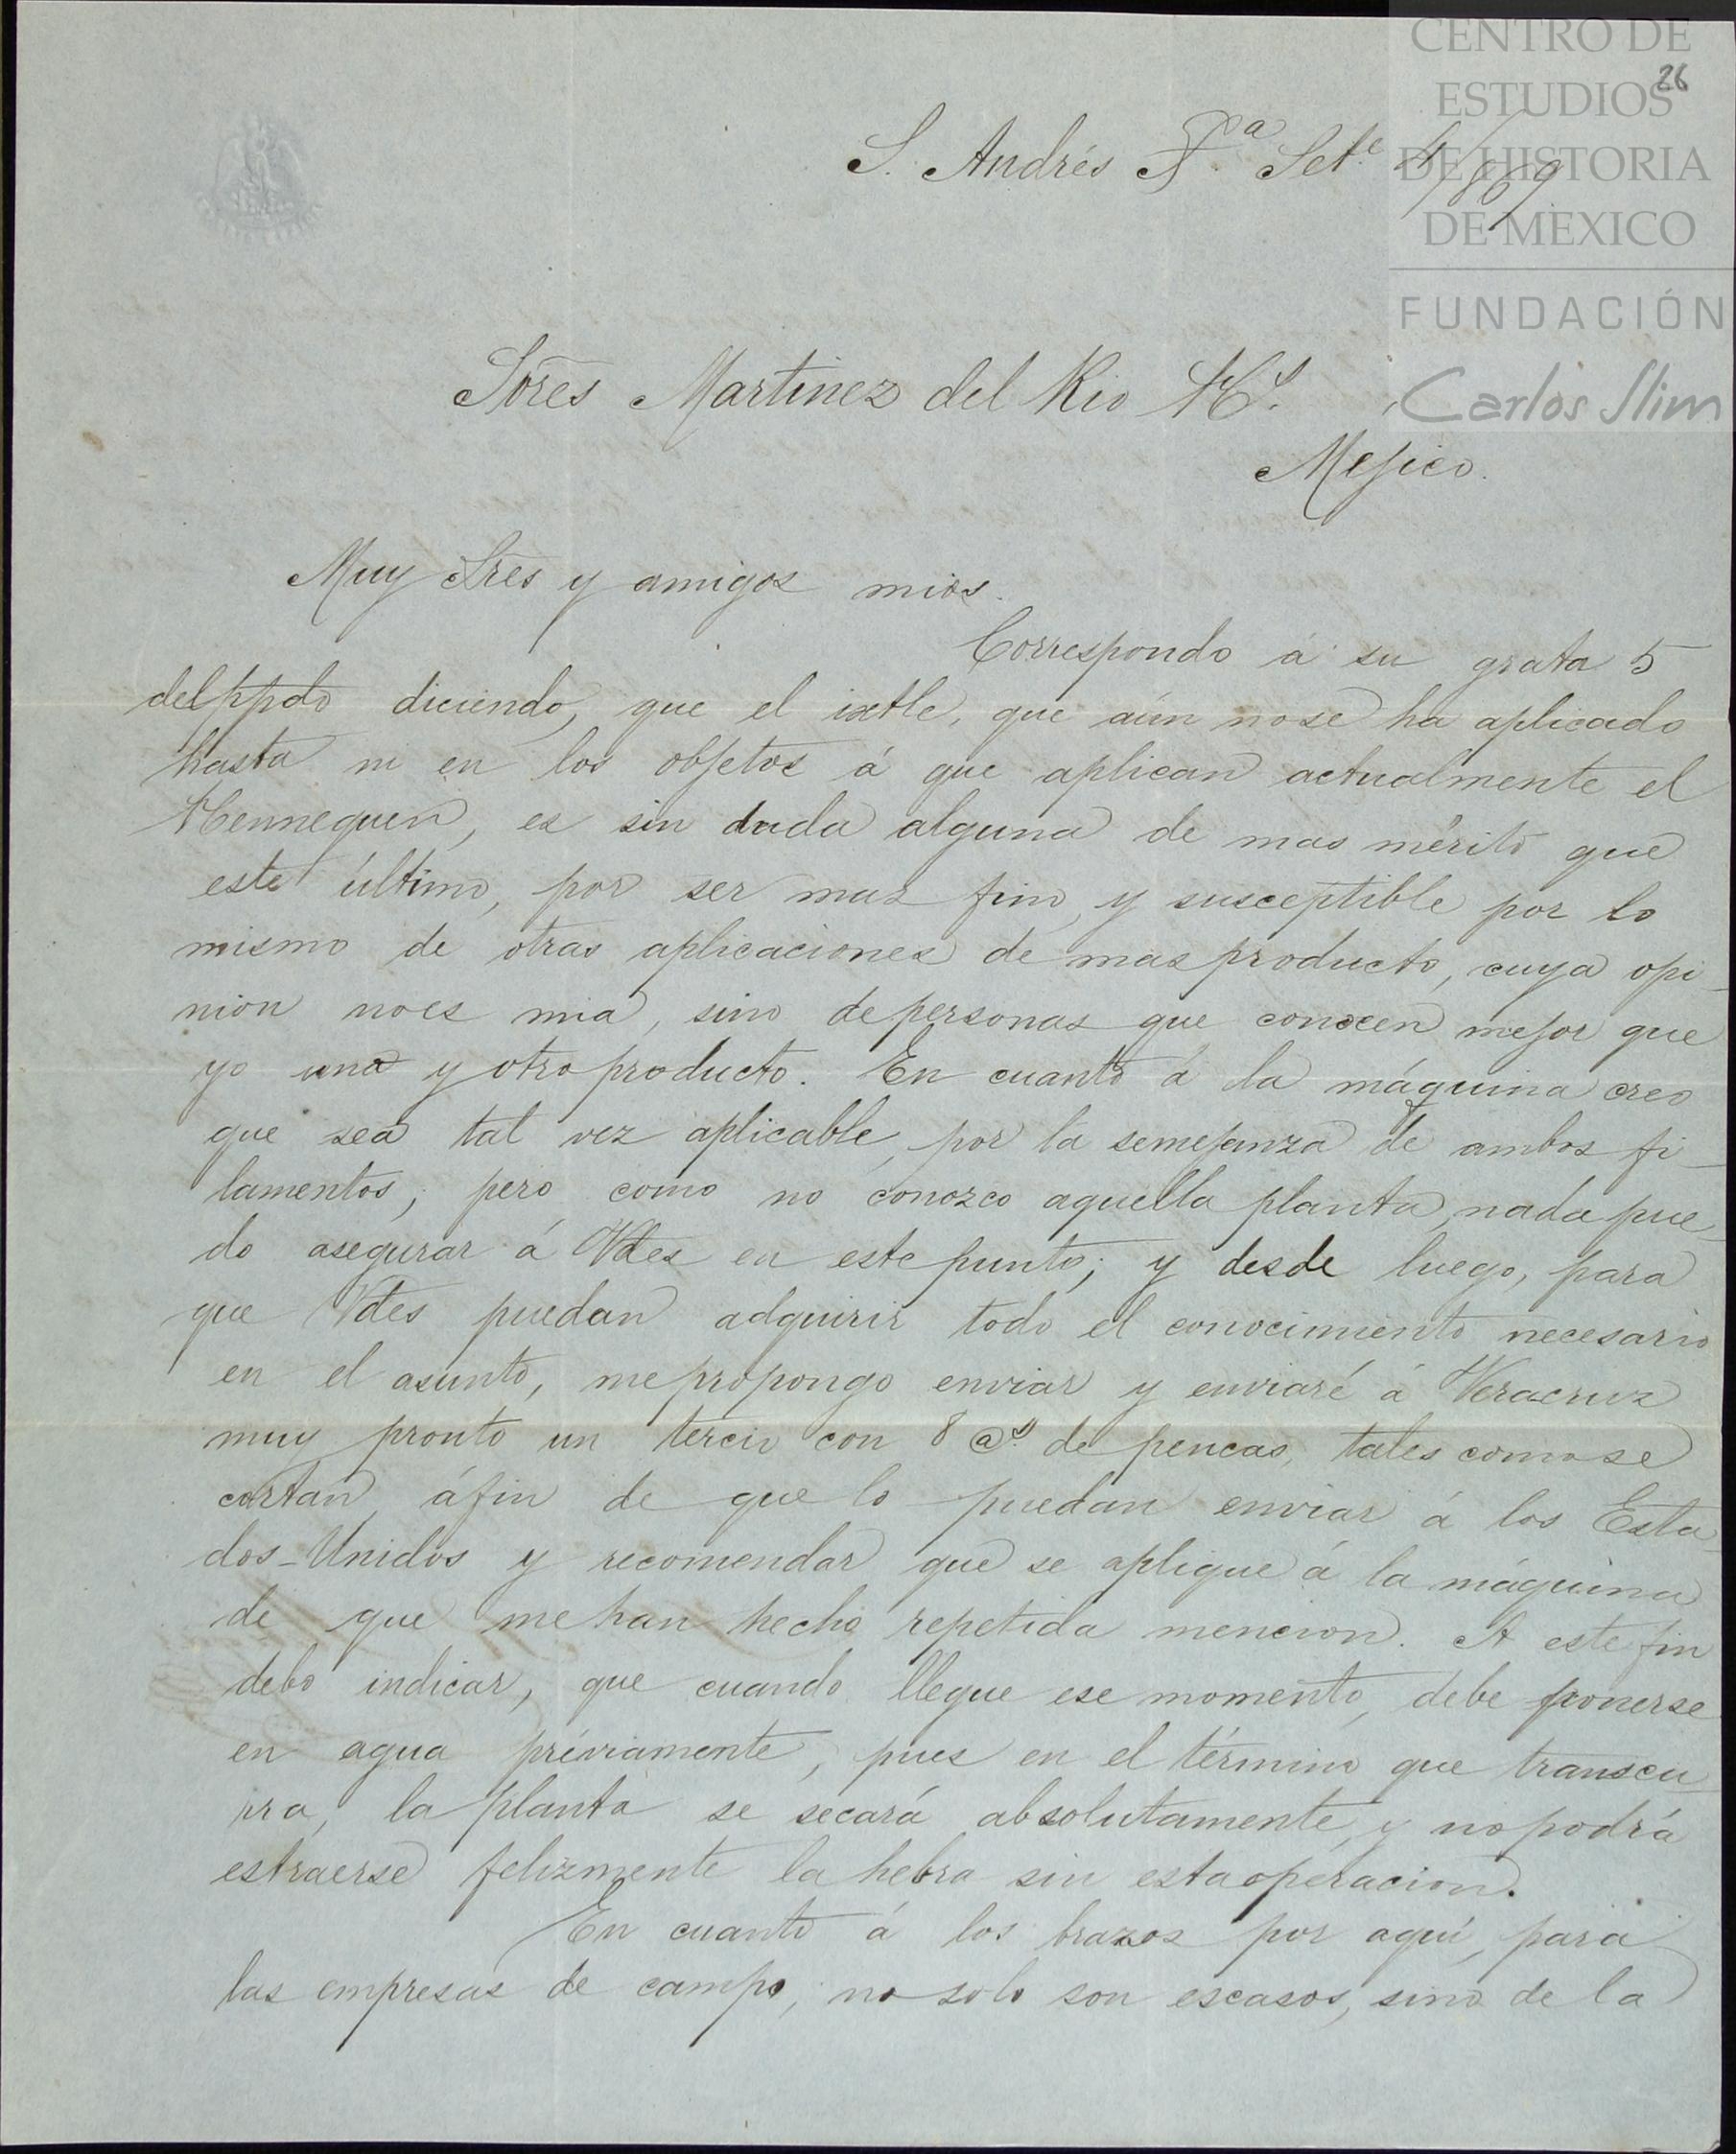 CENTRO DE
ESTUDIOS
DE HISTORIA
DE MÉXICO
FUNDACIÓN
Carlos Slim
26
S. Andrés T.ª Set.e 4/869
Sŏres Martinez del Rio H.s
Mejico.
Muy Sres y amigos mios.
Correspondo á su grata 5
del ppdo diciendo, que el ixtle, que aún no se ha aplicado
hasta ni en los objetos á que aplican actualmente el
Hennequen, es sin duda alguna de mas mérito que
este último, por ser mas fino, y susceptible por lo
mismo de otras aplicaciones de mas producto, cuya opi_
nion no es mia, sino de personas que conocen mejor que
yo uno y otro producto. En cuanto á la máquina creo
que sea tal vez aplicable, por la semejanza de ambos fi_
lamentos; pero como no conozco aquella planta, nada pue_
do asegurar á Vdes en este punto; y desde luego, para
que Vdes puedan adquirir todo el conocimiento necesario
en el asunto, me propongo enviar y enviaré á Veracruz
muy pronto un tercio con 8 @s de pencas, tales como se
cortan, áfin de que lo puedan enviar á los Esta_
dos-Unidos y recomendar que se aplique á la máquina
de que me han hecho repetida mencion. A este fin
debo indicar, que cuando llegue ese momento, debe ponerse
en agua préviamente, pues en el término que transcu_
rra, la planta se secará absolutamente, y no podrá
estraerse felizmente la hebra sin esta operacion.
En cuanto á los brazos por aquí, para
las empresas de campo, no solo son escasos, sino de la